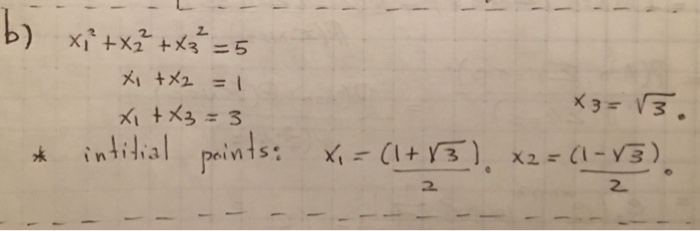 b) x₁² + x₂² + x₃² = 5
x₁ + x₂ = 1
x₁ + x₃ = 3
x₃ = √3.
* intitial points: x₁ = (1 + √3)/2. x₂ = (1 - √3)/2.